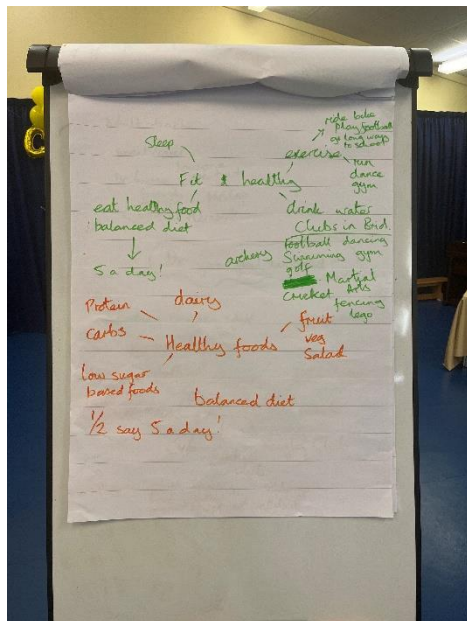 Sleep
ride bike
play football
go long ways
to school
exercise
run
dance
gym
Fit & healthy
eat healthy food
balanced diet
5 a day!
drink water
Clubs in Brid.
football dancing
archery Swimming gym
golf
Cricket Martial
Arts
fencing
lego
Protein
dairy
carbs
Healthy foods
fruit
veg
Salad
low sugar
based foods
balanced diet
1/2 say 5 a day!